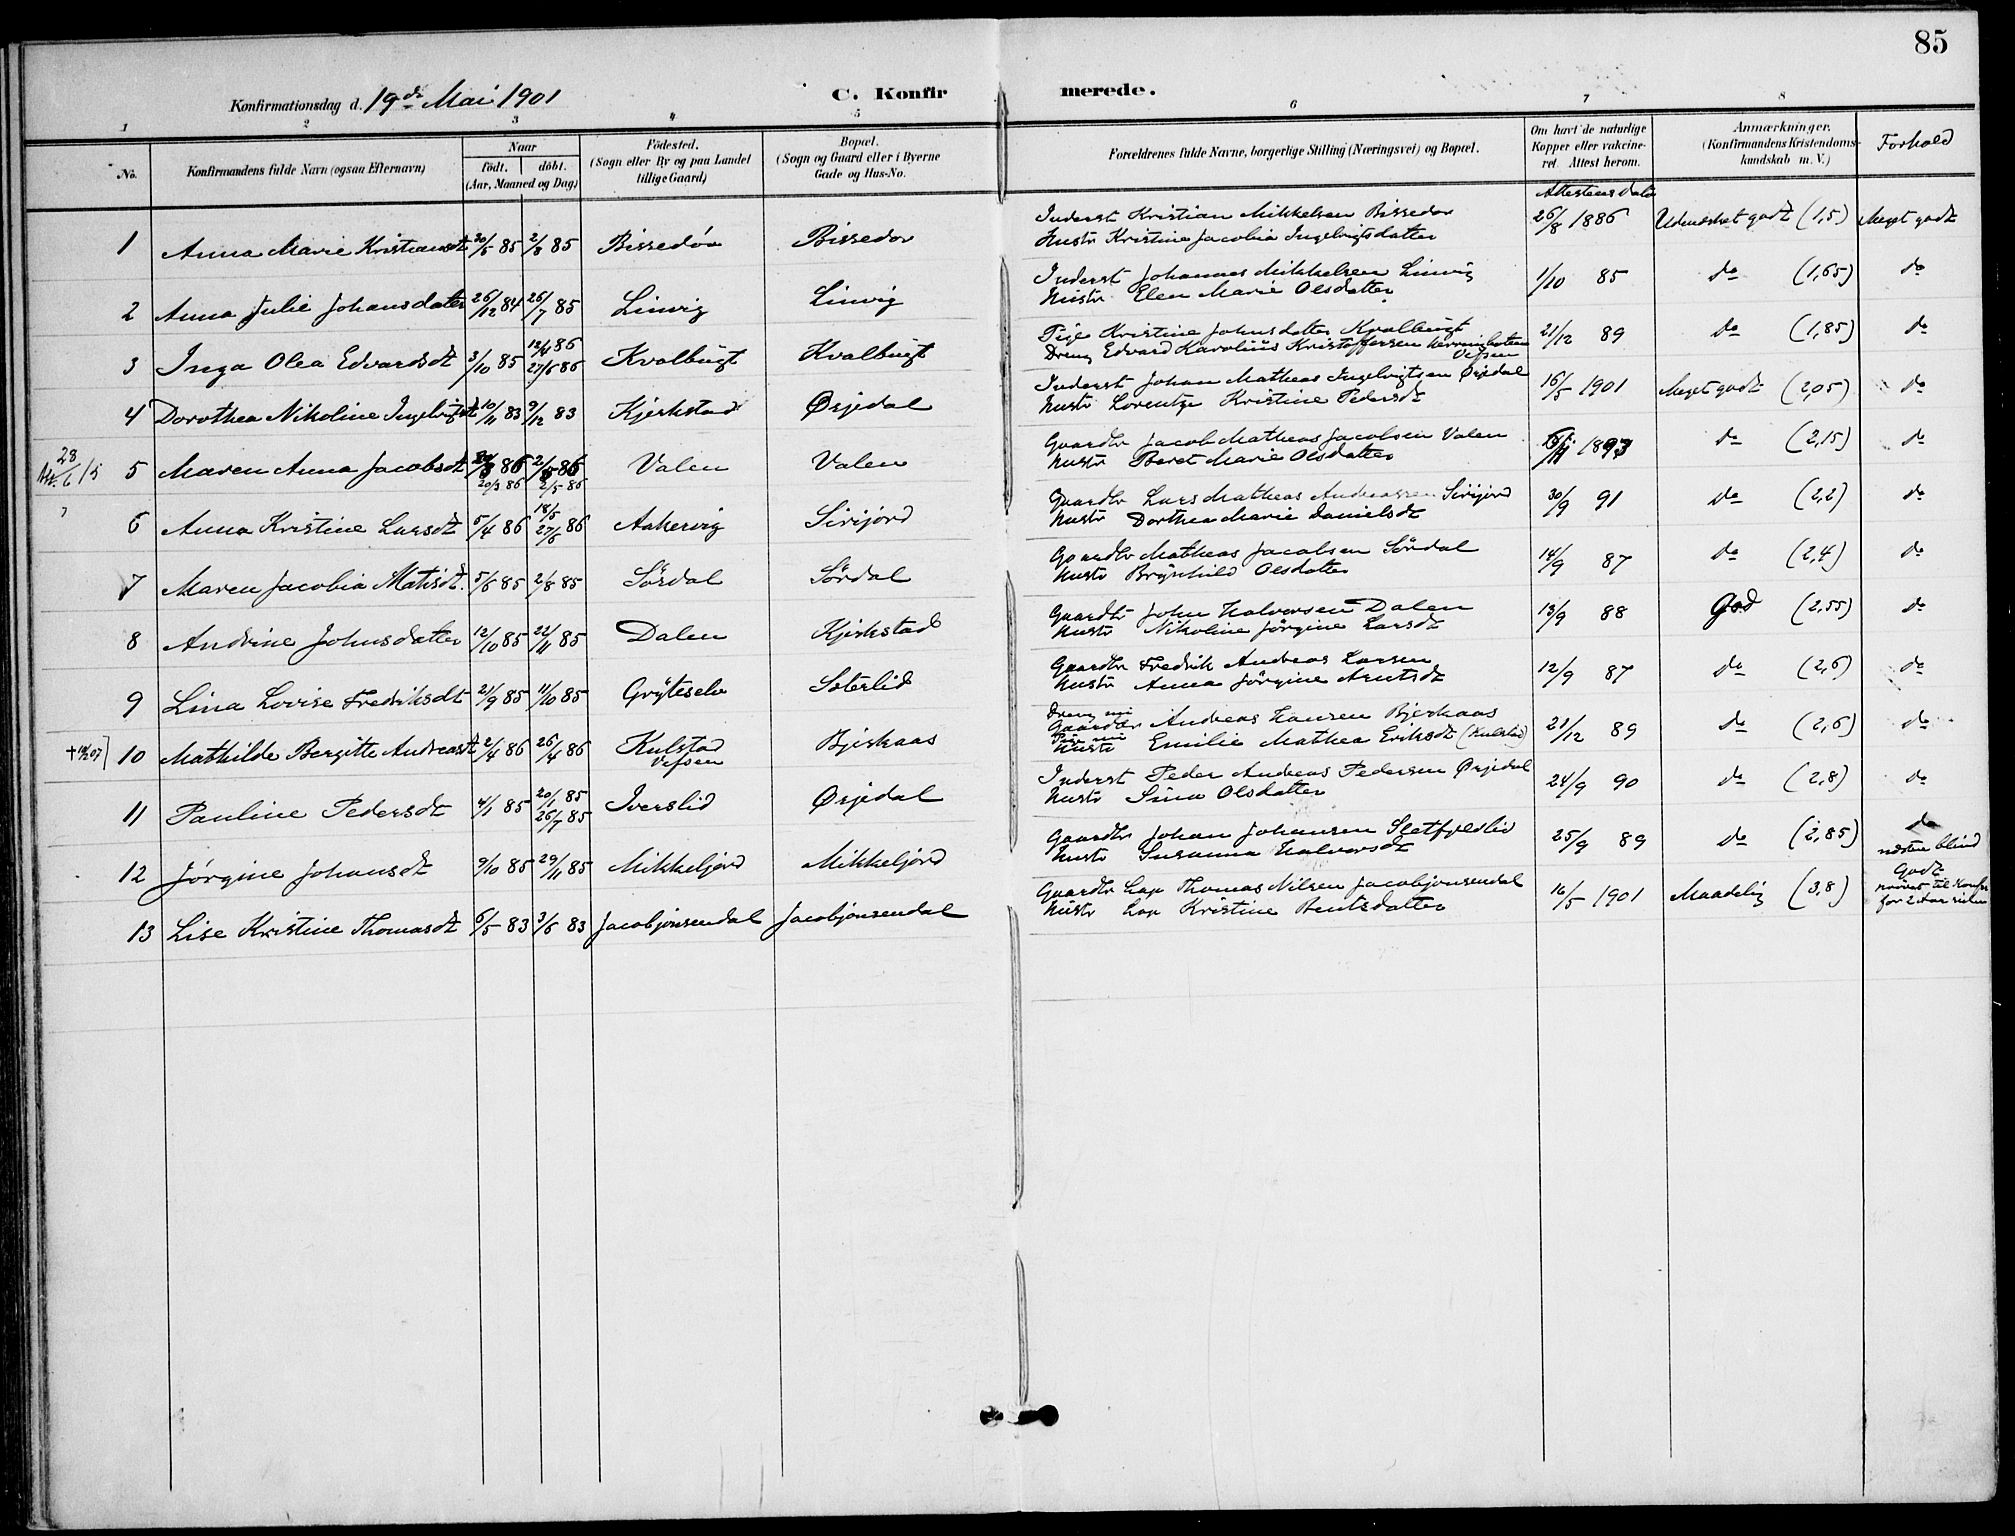 85
Konfirmationsdag d. 19de Mai 1901
C. Konfirmerede.
1 2 3 4 5 6 7 8
No.
Konfirmandens fulde Navn (ogsaa Efternavn)
Naar
födt. döbt.
(Aar, Maaned og Dag)
Födested.
(Sogn eller By og paa Landet
tillige Gaard)
Bopæl.
(Sogn og Gaard eller i Byerne
Gade og Hus-No.
Forældrenes fulde Navne, borgerlige Stilling (Næringsvei) og Bopæl.
Om havt de naturlige
Kopper eller vakcine-
ret. Attest herom.
Anmærkninger.
(Konfirmandens Kristendoms-
kundskab m. V.)
Forhold
Attestens dato
1 Anna Marie Kristiansdt 20/5 85 2/8 85 Bissedøn Bissedor
Inderst Kristian Mikkelsen Bissedor
Hustr Kristine Jacobia Ingebrigtsdatter
26/8 1886 Udmærket godt (1,5) Meget godt
2 Anna Julie Johansdatter 26/12 84 26/7 85 Linvig Linvig
Inderst Johannes Mikkelsen Linvig
Hustr Elen Marie Olsdatter
1/10 85 do (1,65) do
3 Inga Olea Edvardsdt 3/10 85 12/4 86 27/6 86 Kvalbugt Kvalbugt
Pige Kristine Johnsdatter Kvalbugt
Dreng Edvard Karolius Kristoffersen
Vefsen
21/12 89 do (1,85) do
4 Dorothea Nikoline Ingebrigtsdt 10/11 83 9/12 83 Kjerkstad Øsjedal
Inderst Johan Matheas Ingebrigtsen Øsjedal
Hustr Lorentze Kristine Pedersdt
16/5 1901 Meget godt (2,05) do
28/6 15
5 Maren Anna Jacobsdt 86 86 Valen Valen
20/3 86 2/5 86
Gaardbr Jacob Matheas Jacobsen Valen
Hustr Beret Marie Olsdatter
1893 do (2,15) do
6 Anna Kristine Larsdt 5/4 86 18/5 27/6 86 Aakervig Sirijord
Gaardbr Lars Matheas Andreassen Sirijord
Hustr Dorthea Marie Danielsdt
30/9 91 do (2,2) do
7 Maren Jacobia Matisdt. 5/6 85 2/8 85 Sørdal Sørdal
Gaardbr Matheas Jacobsen Sørdal
Hustr Brynhild Olsdatter
14/9 87 do (2,4) do
8 Andrine Johnsdatter 12/10 85 22/11 85 Dalen Kjerkstad
Gaardbr John Halvorsen Dalen
Hustr Nikoline Jørgine Larsdt
13/9 88 God (2,55) do
9 Lina Lovise Fredriksdt 21/9 85 11/10 85 Gryteselv Soterlid
Gaardbr Fredrik Andreas Larsen
Hustr Anna Jørgine Arntsdt
12/9 87 do (2,6) do
10 Mathilde Bergitte Andreasdt 2/4 86 26/4 86 Kulstad Bjerkaas
Vefsen
Gaardbr Andreas Hansen Bjerkaas
Hustr Emilie Mathea Eriksdt (Kulstad)
21/12 89 do (2,6) do
11 Pauline Pedersdt 4/1 85 20/1 85 26/7 85 Iverslid Øsjedal
Inderst Peder Andreas Pedersen Øsjedal
Hustr Sina Olsdatter
24/9 90 do (2,8) do
12 Jørgine Johansdt 9/10 85 29/11 85 Mikkeljord Mikkeljord
Gaardbr Johan Johansen Sletfjeldlid
Hustr Susanna Halvorsdt
25/9 89 do (2,85) do
næsten blind
13 Lise Kristine Thomasdt 6/5 83 3/6 83 Jacobjonsendal Jacobjonsendal
Gaardbr Lap Thomas Nilsen Jacobjonsendal
Hustr Lap Kristine Bentsdatter
16/5 1901 Maadelig (3,8) Godt
til Konfir
for 2 Aar siden